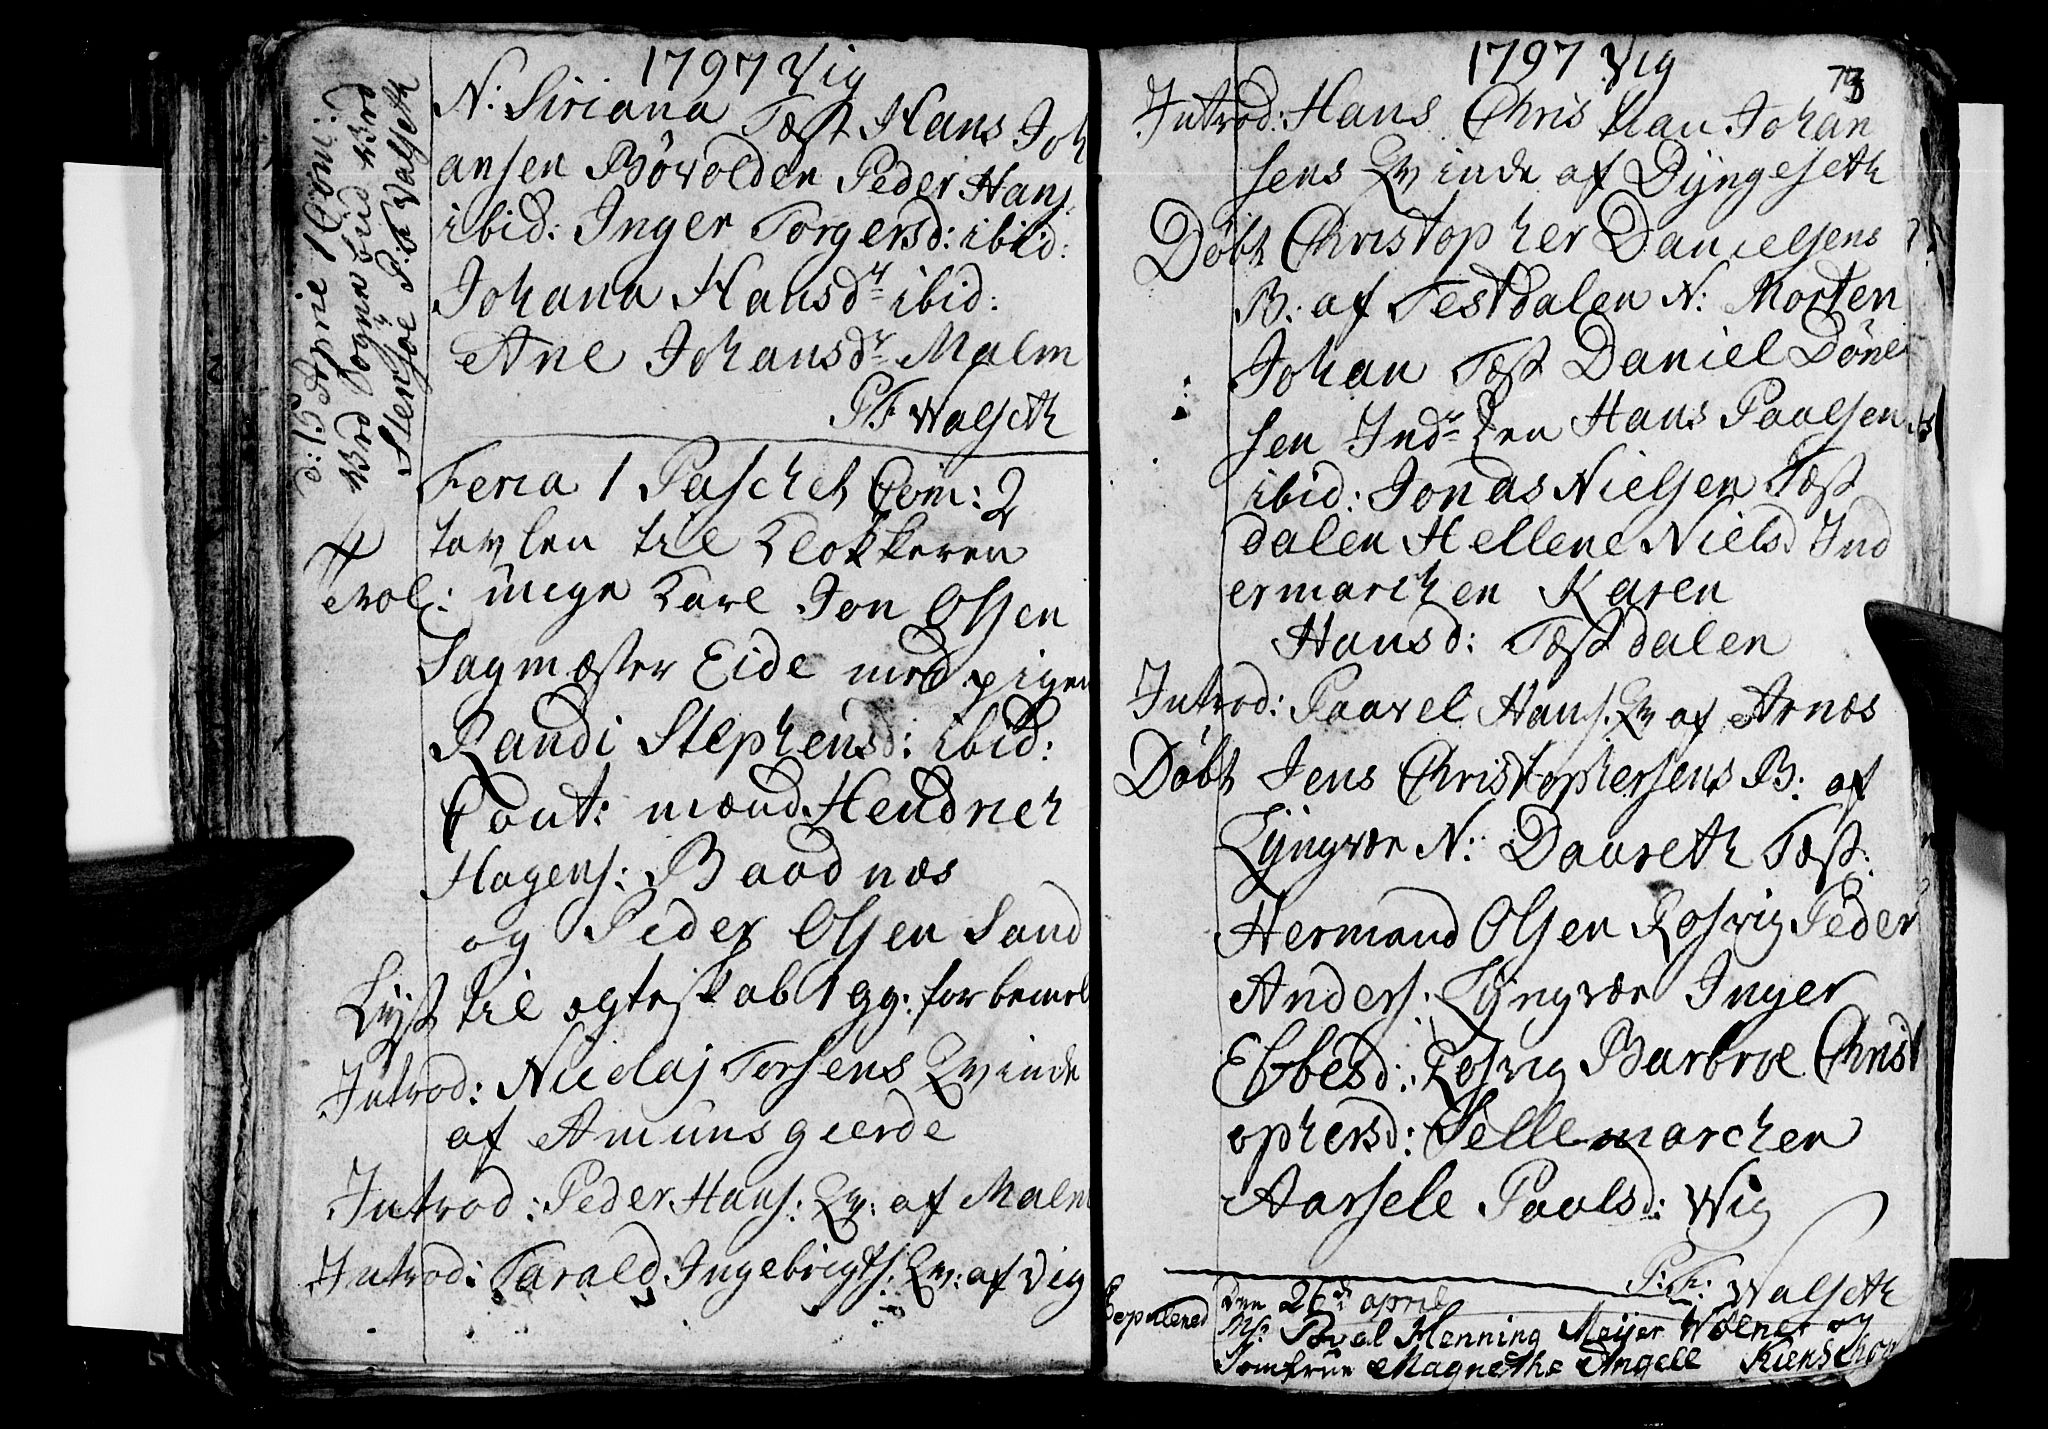 1797 Vig
N: Siriana Test Hans Joh
ansen Bøvolden Peder Hans:
ibid: Inger Torgersd: ibid:
Johana Hansdr ibid:
Ane Johansdr Malm
P.F Walseth
d: 15 Aprie 1 Com:
Stensøe P: F Walseth
Feria 1 Paschet Com: 2
tavlen til Klokkeren
Trol: unge Karl Jon Olsen
Sagmæster Eide med pigen
Randi Stephensd: ibid:
Caut: mænd Hendrich
Hagens: Baadnæs
og Peder Olsen Sand
Lyst til ogteskab 1 gg: for bemel
Introd: Nicolaj Torsens Qvinde
af Amunsgierde
Introd: Peder Hans: Qv: af Malm
Introd: Tarald Ingebrigts: Qv: af Vig
1797 Vig
73
Introd: Hans Christian Johan
sens Qvinde af Dyngeseth
Døbt Christopher Danielsens
B: af Testdalen N: Morten
Johan Test Daniel Døne
sen Indr Hans Paalsen
ibid: Jonas Nielsen Test
dalen Hellene Nielsd Ind
ermarchen Karen
Hansd: Testdalen
Introd: Paavel Hans: Qv af Arnæs
Døbt Jens Christophersens B: af
Lyngvær N: Daareth Test:
Hermand Olsen Rosvig Peder
Anders: Lyngvær Inger
Ebbesd: Rosvig Barbroe Christ
ophersd: Sellemarchen
Aarsele Paalsd: Wig
P: F: Walseth
Copulered den 26de april
Mr: Povel Henning Meijer Wolner og
Jomfrue Magnethe Angell Kienschow